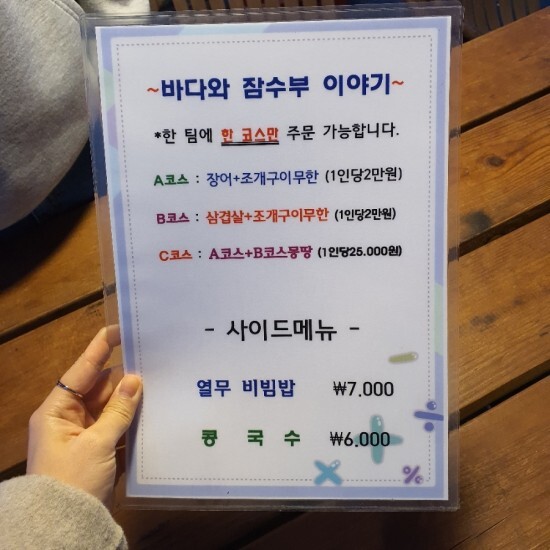 ~바다와 잠수부 이야기~
*한 팀에 한 코스만 주문 가능합니다.
A코스 : 장어+조개구이무한 (1인당2만원)
B코스 : 삼겹살+조개구이무한 (1인당2만원)
C코스 : A코스+B코스몽땅 (1인당25.000원)
- 사이드메뉴 -
열무 비빔밥 ₩7.000
콩 국 수 ₩6.000